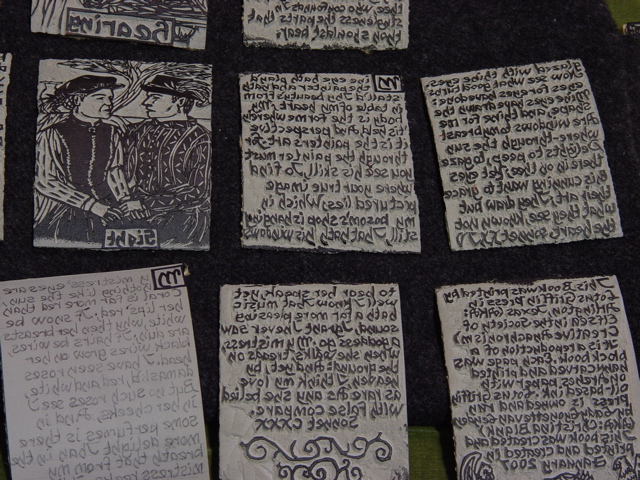 Hearing
singleness the parts that
thou shouldst bear.
eye hath plaid
the painter and hath
thy beauties form
in table of my heart, My
body is the frame wherein
tis held, And perspective
it is best painters art. For
through the painter must
you see his skill, To find
where your true image
pictured lies, Which in
my bosoms shop is hanging
still, That hath his windows
glazed with thine eyes.
Now see what good turns
eyes for eyes have done
Mine eyes have drawn thy
shape, and thine for me
Are windows to my breast
where through the sun
Delights to peep, to gaze
therein on thee; Yet eyes
this cunning want to grace
their art, They draw but
what they see, know not
the heart. Sonnet XXIV
Sight
My mistress eyes are
nothing like the sun,
Coral is far more red than
her lips red, If snow be
white, why then her breasts
are dun; If hairs be wires
black wires grow on her
head. I have seen roses
damasked, red and white
But no such roses see I
in her cheeks, And in
some perfumes is there
more delight Than in the
breath that from my
mistress reeks
to hear her speak, yet
well I know that music
hath a far more pleasing
sound, I grant I never saw
a goddess go, My mistress
when she walks treads on
the ground: And yet by
heaven I think my love
as rare As any she belied
with false compare.
Sonnet CXXX
This Book was printed by
Lotus Griffin press
Arlington, Texas,
Citizen in the Society of
Creative Anachronism
It is a reproduction of a
blockbook. Each page was
hand carved and printed
on citrus paper with
oil based ink.
press is owned and ran
by
This book was created
January 2007